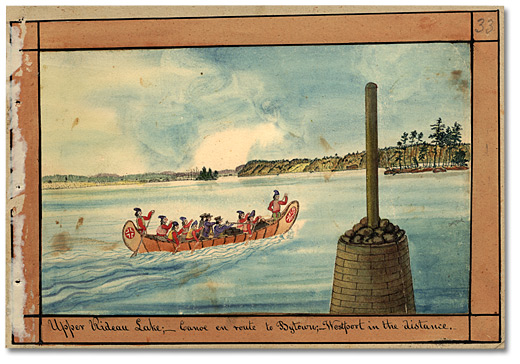 33
Upper Rideau Lake;— Canoe en route to Bytown;—Westport in the distance.